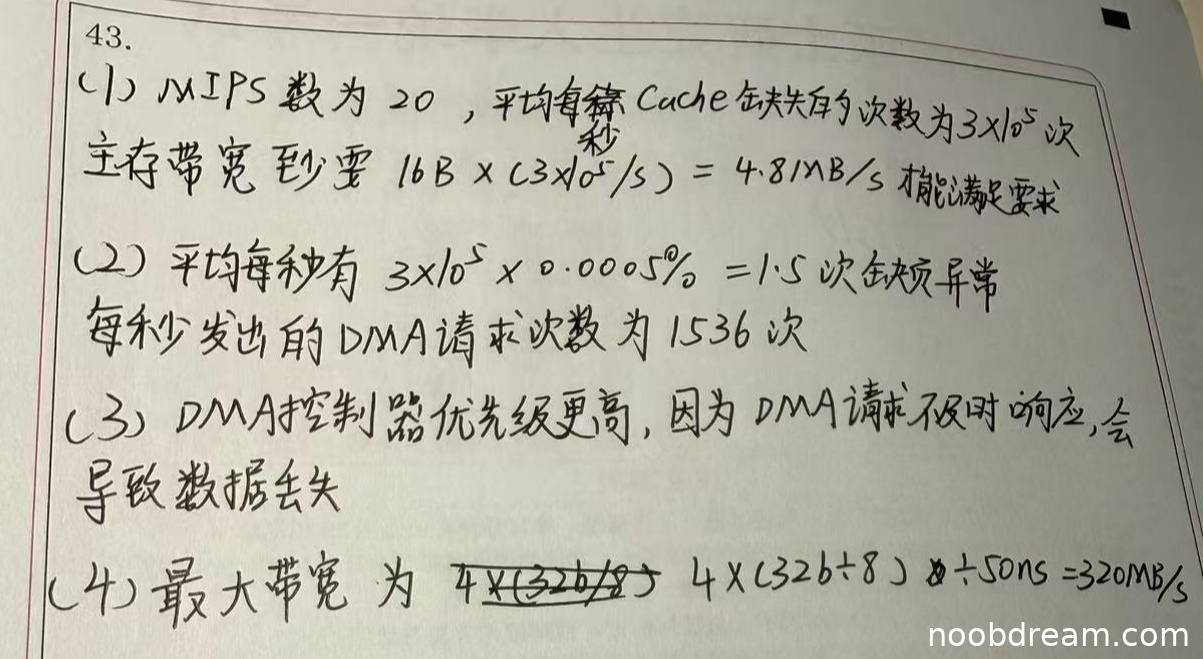 43.
(1) MIPS 数为 20 ，平均每秒 Cache 缺失的次数为 3×10⁵ 次
主存带宽至少要 16B × (3×10⁵/s) = 4.8MB/s 才能满足要求
(2) 平均每秒有 3×10⁵ × 0.0005% = 1.5 次缺页异常
每秒发出的DMA请求次数为 1536 次
(3) DMA控制器优先级更高，因为 DMA请求不及时响应，会
导致数据丢失
(4) 最大带宽 为 4×(32b/8) 4×(32b÷8) ÷50ns =320MB/s
noobdream.com